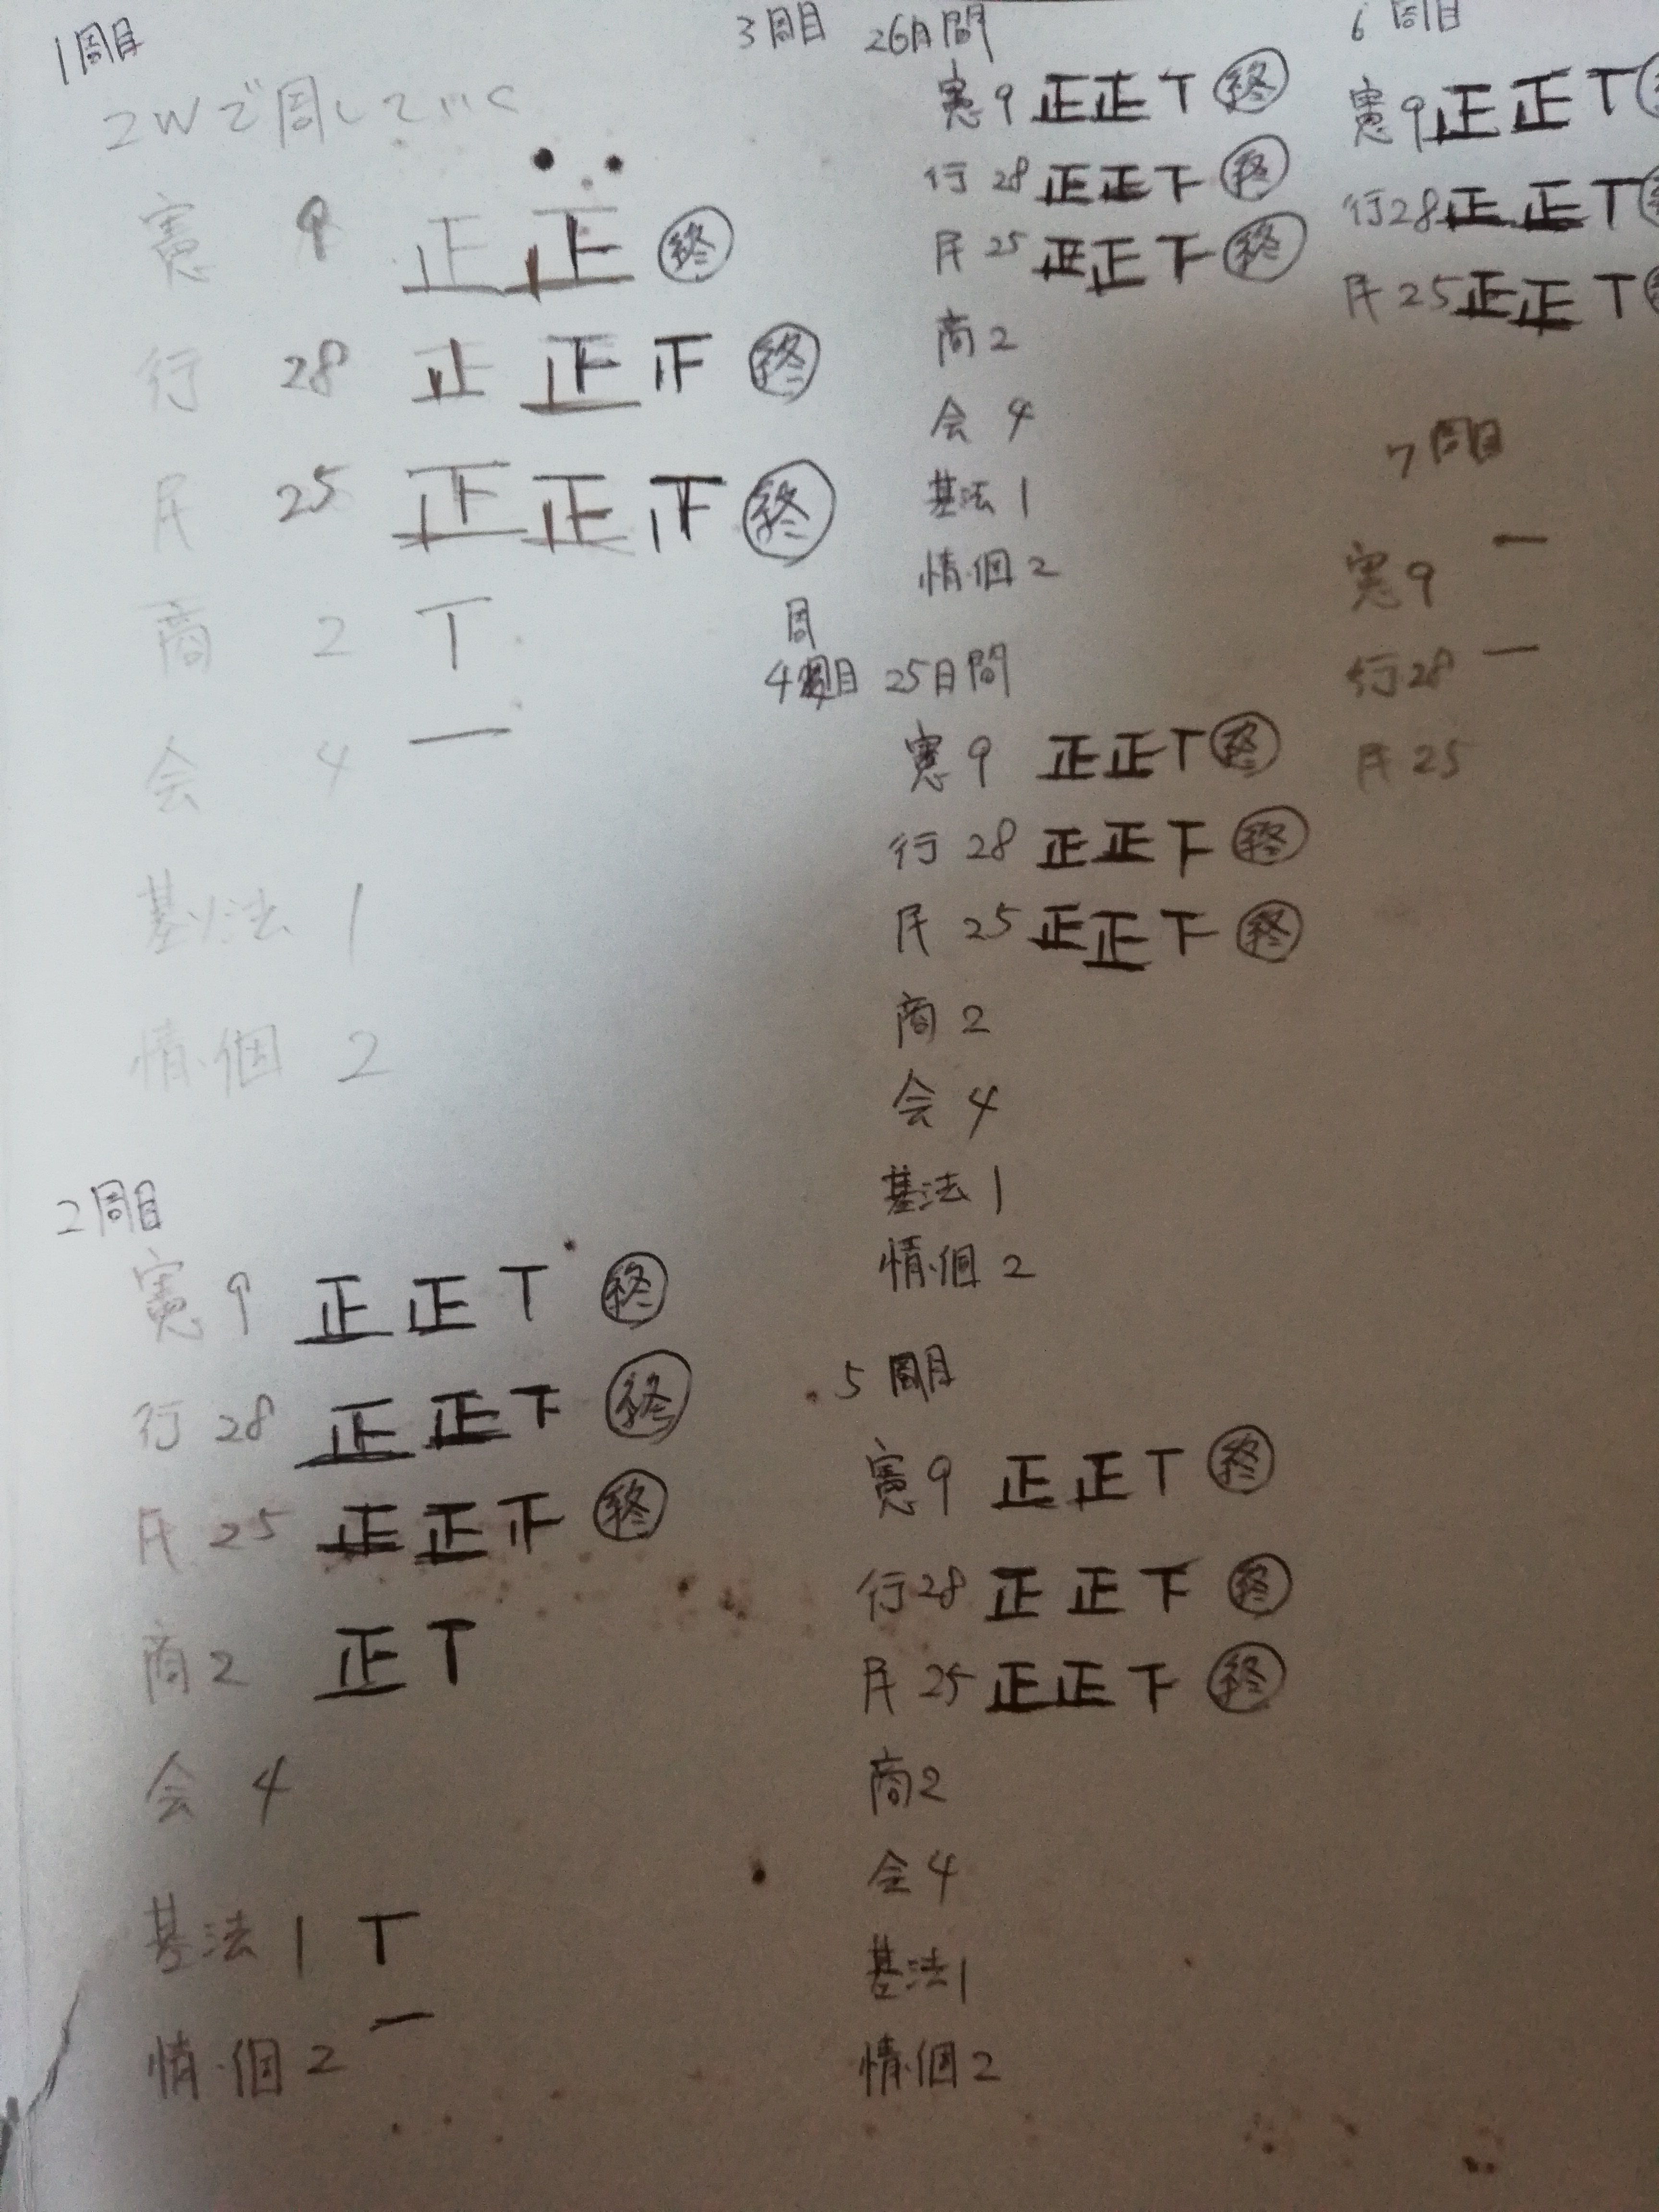 1周目
2Wで周していく
憲 9 正 正 ㊡終
行 28 正 正 正 終
民 25 正 正 正 終
商 2 T
会 4 一
基法 1
情・個 2
2周目
憲 9 正 正 T 終
行 28 正 正 下 終
民 25 正 正 正 終
商 2 正 T
会 4
基法 1 T
情・個 2 一
3周目 26日間
憲 9 正 正 T 終
行 28 正 正 下 終
民 25 正 正 下 終
商 2
会 4
基法 1
情・個 2
周
4周目 25日間
憲 9 正 正 T 終
行 28 正 正 下 終
民 25 正 正 下 終
商 2
会 4
基法 1
情・個 2
5周目
憲 9 正 正 T 終
行 28 正 正 下 終
民 25 正 正 下 終
商 2
会 4
基法 1
情・個 2
6周目
憲 9 正 正 T
行 28 正 正 T
民 25 正 正 T
7周目
憲 9 一
行 28 一
民 25